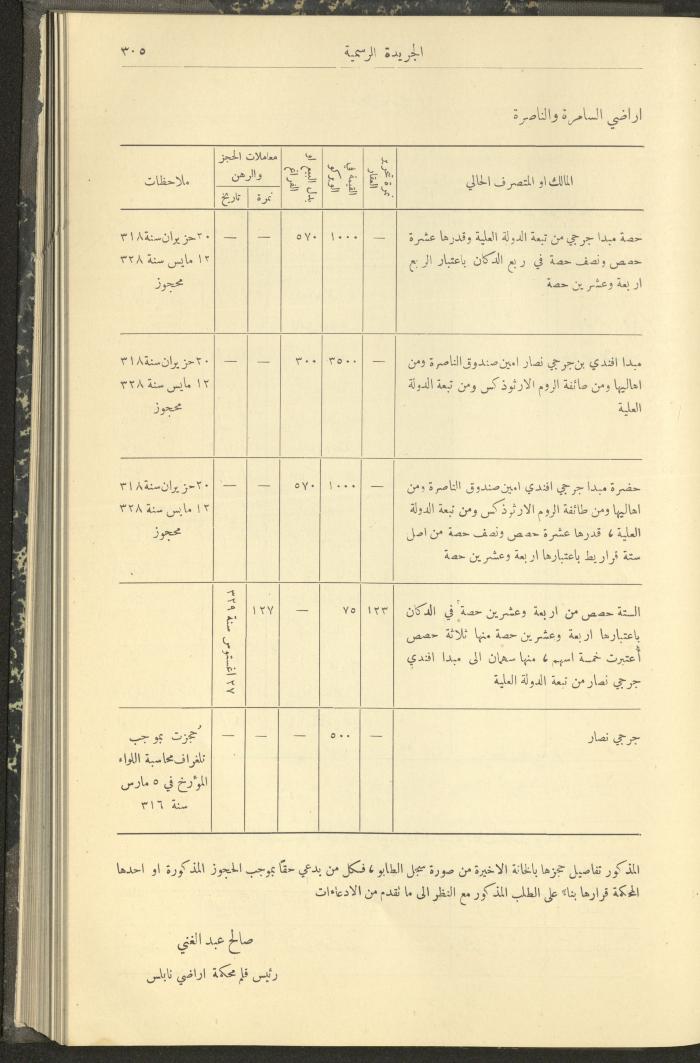 الجريدة الرسمية
٣٠٥
اراضي السامرة والناصرة
المالك او المتصرف الحالي
نمرة تحرير العقار
القيمة في الويركو
بدل البيع او الفراغ
معاملات الحجز والرهن
نمرة
تاريخ
ملاحظات
حصة مبدا جرجي من تبعة الدولة العلية وقدرها عشرة
حصص ونصف حصة في ربع الدكان باعتبار الربع
اربعة وعشرين حصة
—
١٠٠٠
٥٧٠
—
—
٢٠ حزيران سنة ٣١٨
١٢ مايس سنة ٣٢٨
محجوز
مبدا افندي بن جرجي نصار امين صندوق الناصرة ومن
اهاليها ومن طائفة الروم الارثوذكس ومن تبعة الدولة
العلية
—
٣٥٠٠
٣٠٠
—
—
٢٠ حزيران سنة ٣١٨
١٢ مايس سنة ٣٢٨
محجوز
حضرة مبدا جرجي افندي امين صندوق الناصرة ومن
اهاليها ومن طائفة الروم الارثوذكس ومن تبعة الدولة
العلية ، قدرها عشرة حصص ونصف حصة من اصل
ستة قراريط باعتبارها اربعة وعشرين حصة
—
١٠٠٠
٥٧٠
—
—
٢٠ حزيران سنة ٣١٨
١٢ مايس سنة ٣٢٨
محجوز
الستة حصص من اربعة وعشرين حصة في الدكان
باعتبارها اربعة وعشرين حصة منها ثلاثة حصص
أعتبرت خمسة اسهم ، منها سهمان الى مبدا افندي
جرجي نصار من تبعة الدولة العلية
١٢٣
٧٥
—
١٢٧
٢٧ اغستوس سنة ٣٢٩
جرجي نصار
—
٥٠٠
—
—
—
حُجزت بموجب
تلغراف محاسبة اللواء
المؤرخ في ٥ مارس
سنة ٣١٦
المذكور تفاصيل حجزها بالخانة الاخيرة من صورة سجل الطابو ، فكل من يدعي حقاً بموجب الحجوز المذكورة او احدها
المحكمة قرارها بناءً على الطلب المذكور مع النظر الى ما تقدم من الادعاءات
صالح عبد الغني
رئيس قلم محكمة اراضي نابلس